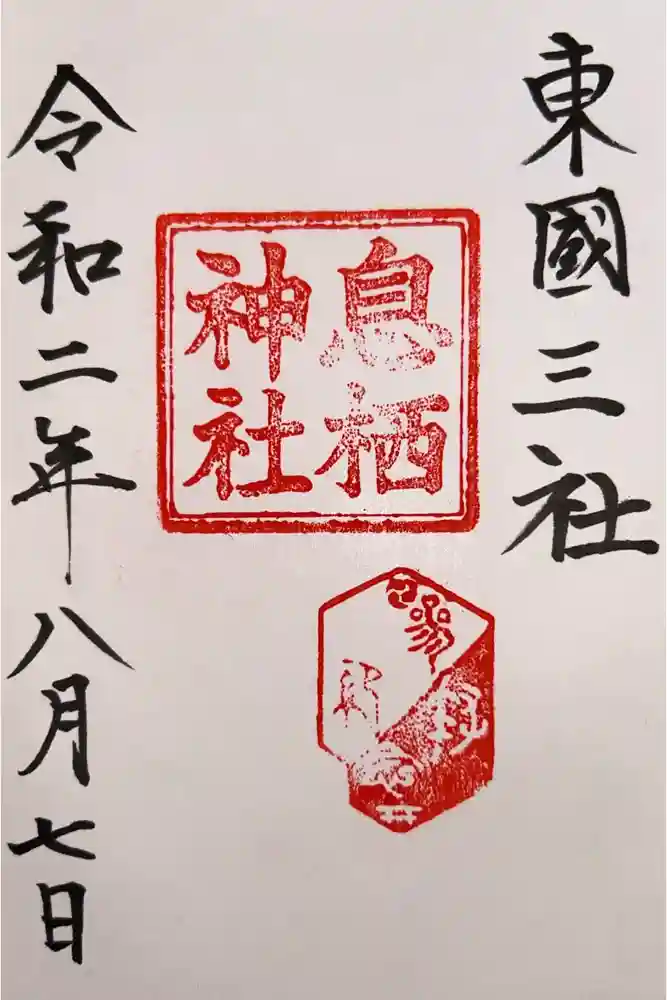 東國三社
息栖
神社
令和二年八月七日